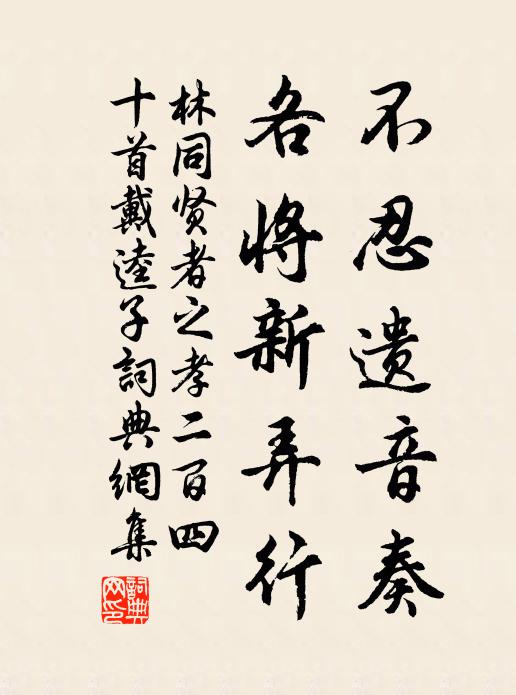 不忍遗音奏
各将新弄行
林同贤者之孝二百四
十首戴逵子詞典網集
詞典网印